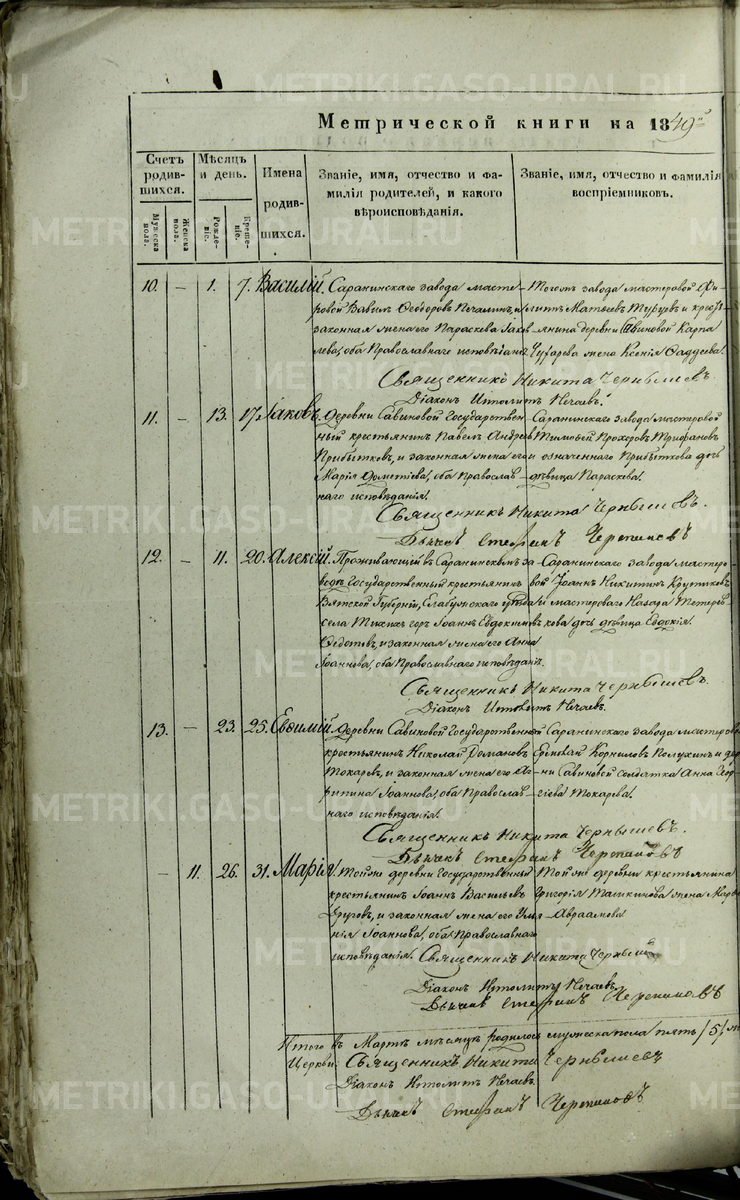 Метрической книги на 1849й
Счетъ родив-шихся.
Мѣсяцъ и день.
Имена родив-шихся.
Званіе, имя, отчество и фа-милія родителей, и какого вѣроисповѣданія.
Званіе, имя, отчество и фамилія воспріемниковъ.
Мужеска пола.
Женска пола.
Рожде-ніе.
Креще-ніе.
10. — 1. 7. Василій.
Саранинскаго завода масте-
ровой Вавилъ Ѳеодоровъ
законная жена его Параскева Яков-
лева, оба Православнаго исповѣданія.
Тогожъ завода мастеровой
литъ Матвеевъ и кресть-
янина деревни Савиновой Карпа
жена Ксенія Фаддеева.
Священникъ Никита Чернышевъ.
Діаконъ Ипполитъ Нечаевъ.
11. — 13. 17. Іаковъ.
Деревни Савиновой Государствен-
ный крестьянинъ Павелъ Андреевъ
Прибытковъ, и законная жена его
Марія Дометіева, оба Православ-
наго исповѣданія.
Саранинскаго завода мастеровой
Тимофей Прохоровъ Трифановъ
и означеннаго Прибыткова дочь
дѣвица Параскева.
Священникъ Никита Чернышевъ.
Дьячекъ Стефанъ Черепановъ
12. — 11. 20. Алексій.
Проживающій въ Саранинскомъ за-
водѣ Государственный крестьянинъ
Вятской Губерніи, Елабужскаго уѣзда
села Тихихъ горъ Іоаннъ Евдокимовъ
Ѳедотовъ, и законная жена его Анна
Іоаннова, оба Православнаго исповѣданія.
Саранинскаго завода мастеро-
вой Іоаннъ Никитинъ Крутиковъ
и мастероваго Назара Тетерев-
кова дочь дѣвица Евдокія.
Священникъ Никита Чернышевъ.
Діаконъ Ипполитъ Нечаевъ.
13. — 23. 25. Евѳимій.
Деревни Савиновой Государственной
крестьянинъ Николай Романовъ
Токаревъ, и законная жена его Аг-
рипина Іоаннова, оба Православ-
наго исповѣданія.
Саранинскаго завода мастеров
Корниловъ Полухинъ и дер
ни Савиновой солдатка Анна Геор
гіева Токарева.
Священникъ Никита Чернышевъ.
Дьячекъ Стефанъ Черепановъ
— 11. 26. 31. Марія.
Тойже деревни Государственный
крестьянинъ Іоаннъ Васильевъ
Друговъ, и законная жена его
нія Іоаннова, оба Православнаго
исповѣданія.
Тойже деревни крестьянина
Григорія жена Мар
Авраамова
Священникъ Никита Черныш
Діаконъ Ипполитъ Нечаевъ
Дьячекъ Стефанъ Черепановъ
Итого въ Мартѣ мѣсяцѣ родилось мужеска пола пять /5/,
Церкви: Священникъ Никита Чернышевъ
Діаконъ Ипполитъ Нечаевъ.
Дьячекъ Стефанъ Черепановъ
METRIKI.GASO-URAL.RU